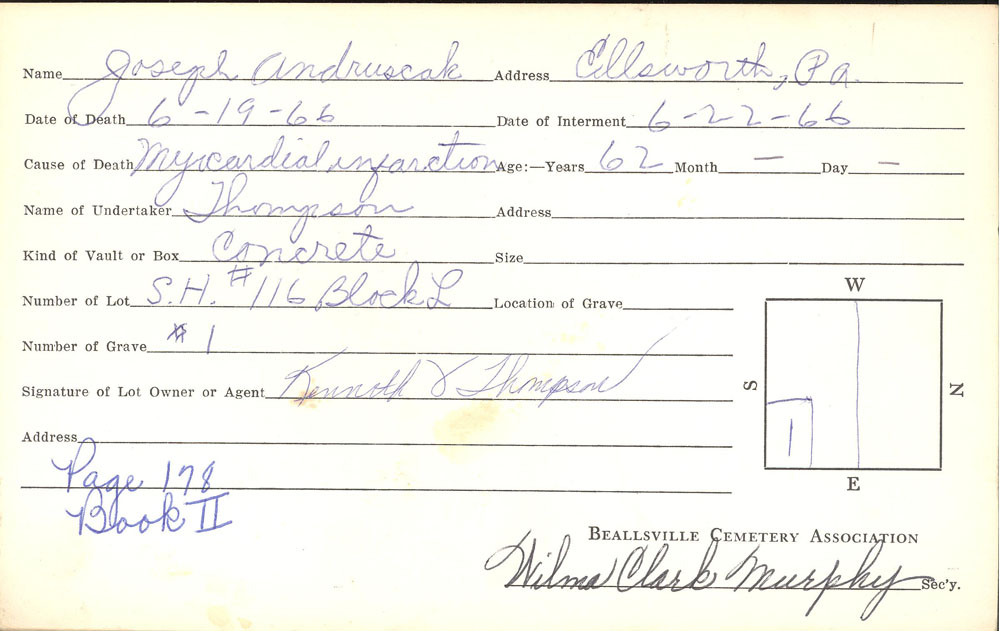 Name Joseph Andruscak Address Ellsworth, Pa.
Date of Death 6-19-66 Date of Interment 6-22-66
Cause of Death Myocardial infarction Age:—Years 62 Month — Day —
Name of Undertaker Thompson Address
Kind of Vault or Box Concrete Size
Number of Lot S.H. #116 Block L Location of Grave
Number of Grave #1
Signature of Lot Owner or Agent Kenneth Thompson
Address
Page 178
Book II
W
S
N
1
E
BEALLSVILLE CEMETERY ASSOCIATION
Wilma Clark Murphy Sec'y.